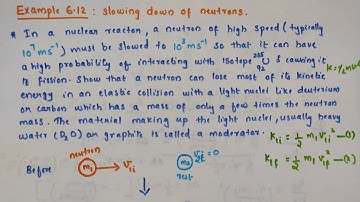 Example 6.12 : slowing down of neutrons.
* In a nuclear reactor, a neutron of high speed (typically
10⁷ ms⁻¹) must be slowed to 10³ ms⁻¹ so that it can have
a high probability of interacting with isotope ²³⁵₉₂U & causing it
to fission. Show that a neutron can lose most of its kinetic
energy in an elastic collision with a light nuclei like deuterium
or carbon which has a mass of only a few times the neutron
mass. The material making up the light nuclei, usually heavy
water (D₂O) or graphite is called a moderator.
K₁ᵢ = ½ m₁ v₁ᵢ² — (1)
K₁f = ½ m₁ v₁f² — (2)
neutron
Before
m₁
v₁ᵢ
m₂
rest